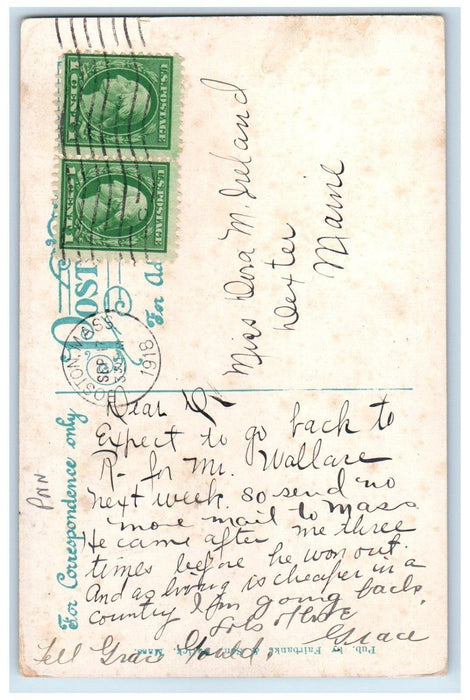 U.S. POSTAGE
U.S. POSTAGE
Post
For Ad
BOSTON, MASS.
SEP
1918
Miss Dora M. Ireland
Dexter
Maine
For Correspondence only
PNN
Dear
Expect to go back to
R- for Mr. Wallace
next week. so send no
more mail to Mass
He came after me three
times before he won out.
And as living is cheaper in a
country I am going back.
Lots of love
Grace
Tell Grace Gould.
Pub. by Fairbanks & Son, Mass.